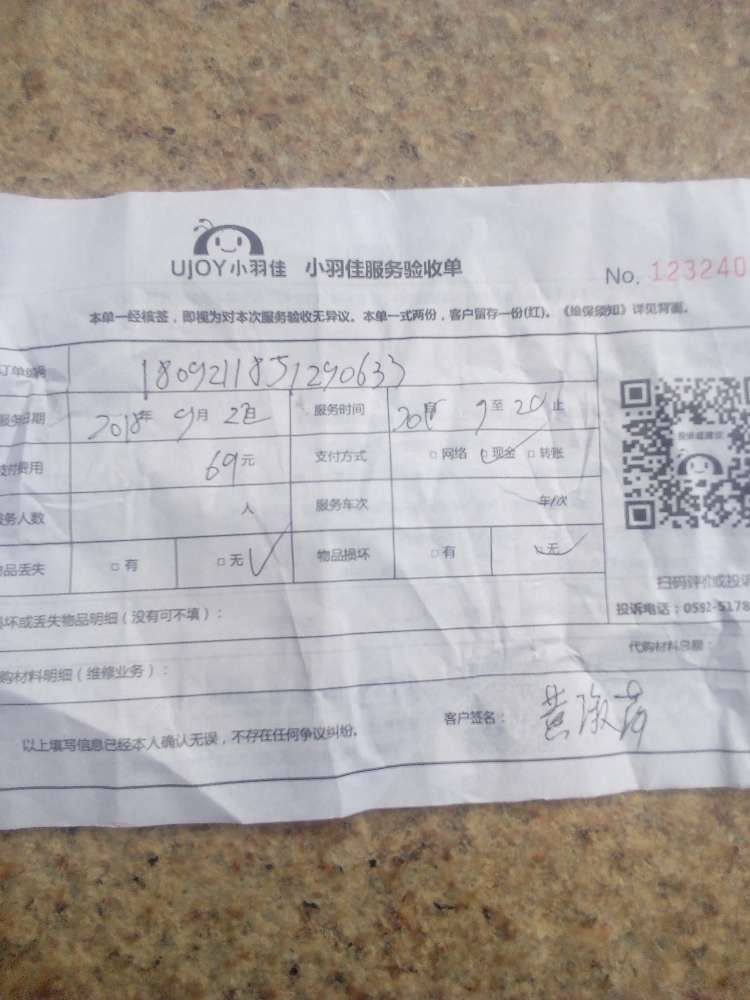 UJOY小羽佳 小羽佳服务验收单 No. 123240
本单一经核签，即视为对本次服务验收无异议。本单一式两份，客户留存一份(红)。《维保须知》详见背面。
订单编号 1809211851290633
服务日期 2018年 9月 22日 服务时间 至 20 止
支付费用 69元 支付方式 □网络 □现金 □转账
服务人数 人 服务车次 车/次
物品丢失 □有 □无 物品损坏 □有 □无
投诉或建议
扫码评价或投诉
投诉电话：0592-5178
损坏或丢失物品明细（没有可不填）：
代购材料总额：
代购材料明细（维修业务）：
以上填写信息已经本人确认无误，不存在任何争议纠纷。 客户签名： 黄